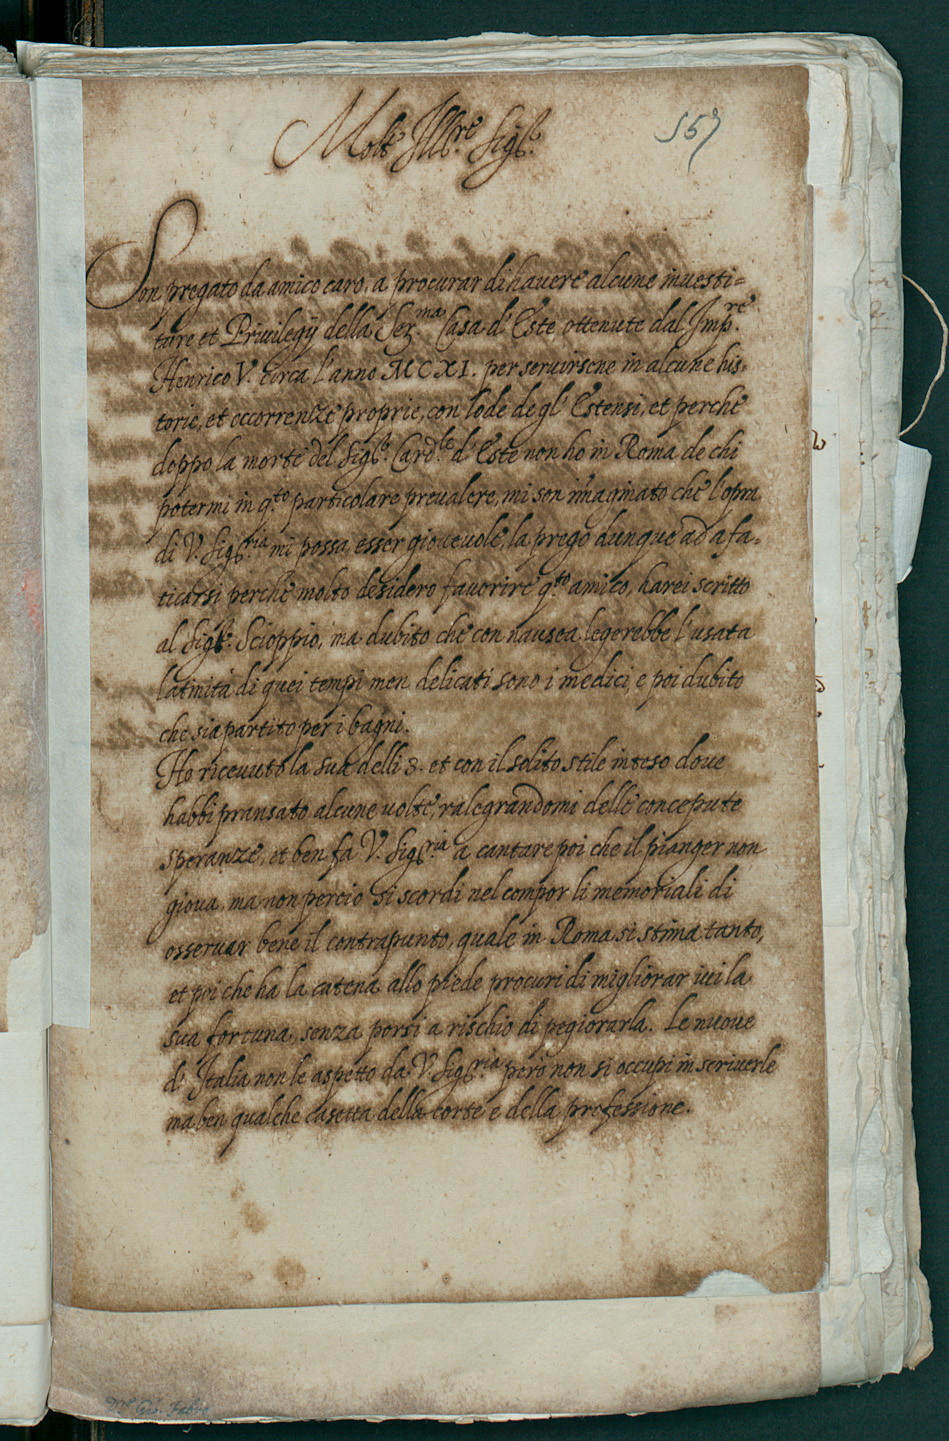 Molt' Ill.re Sig.r
157
Son pregato da amico caro, a procurar di havere alcune inuesti=
ture et Priuilegÿ della Ser.ma Casa d'Este ottenute dal Imp.re
Henrico V. circa l'anno MCXI. per seruirsene in alcune his:
torie, et occorrenze proprie, con lode degl' Estensi, et perche
doppo la morte del Sig.r Card.le d'Este non ho in Roma de chi
potermi in q.to particolare preualere, mi son imaginato che l'opra
di V. Sig.ria mi possa esser gioueuole, la prego dunque ad afa=
ticarsi perche molto desidero fauorire q.to amico, harei scritto
al Sig.r Scioppio, ma dubito che con nausea legerebbe l'usata
latinità di quei tempi men delicati sono i medici, e poi dubito
che sia partito per i bagni.
Ho riceuuto la sua delli 8. et con il solito stile inteso doue
habbi pransato alcune uolte, ralegrandomi delle concepute
speranze, et ben fa V. Sig.ria a cantare poi che il pianger non
gioua, ma non percio si scordi nel compor li memoriali di
osseruar bene il contrapunto, quale in Roma si stima tanto,
et poi che ha la catena allo piede procuri di migliorar iui la
sua fortuna, senza porsi a rischio di pegiorarla. Le nuoue
d'Italia non le aspetto da V. Sig.ria però non si occupi in scriuerle
ma ben qualche casetta della corte e della professione.